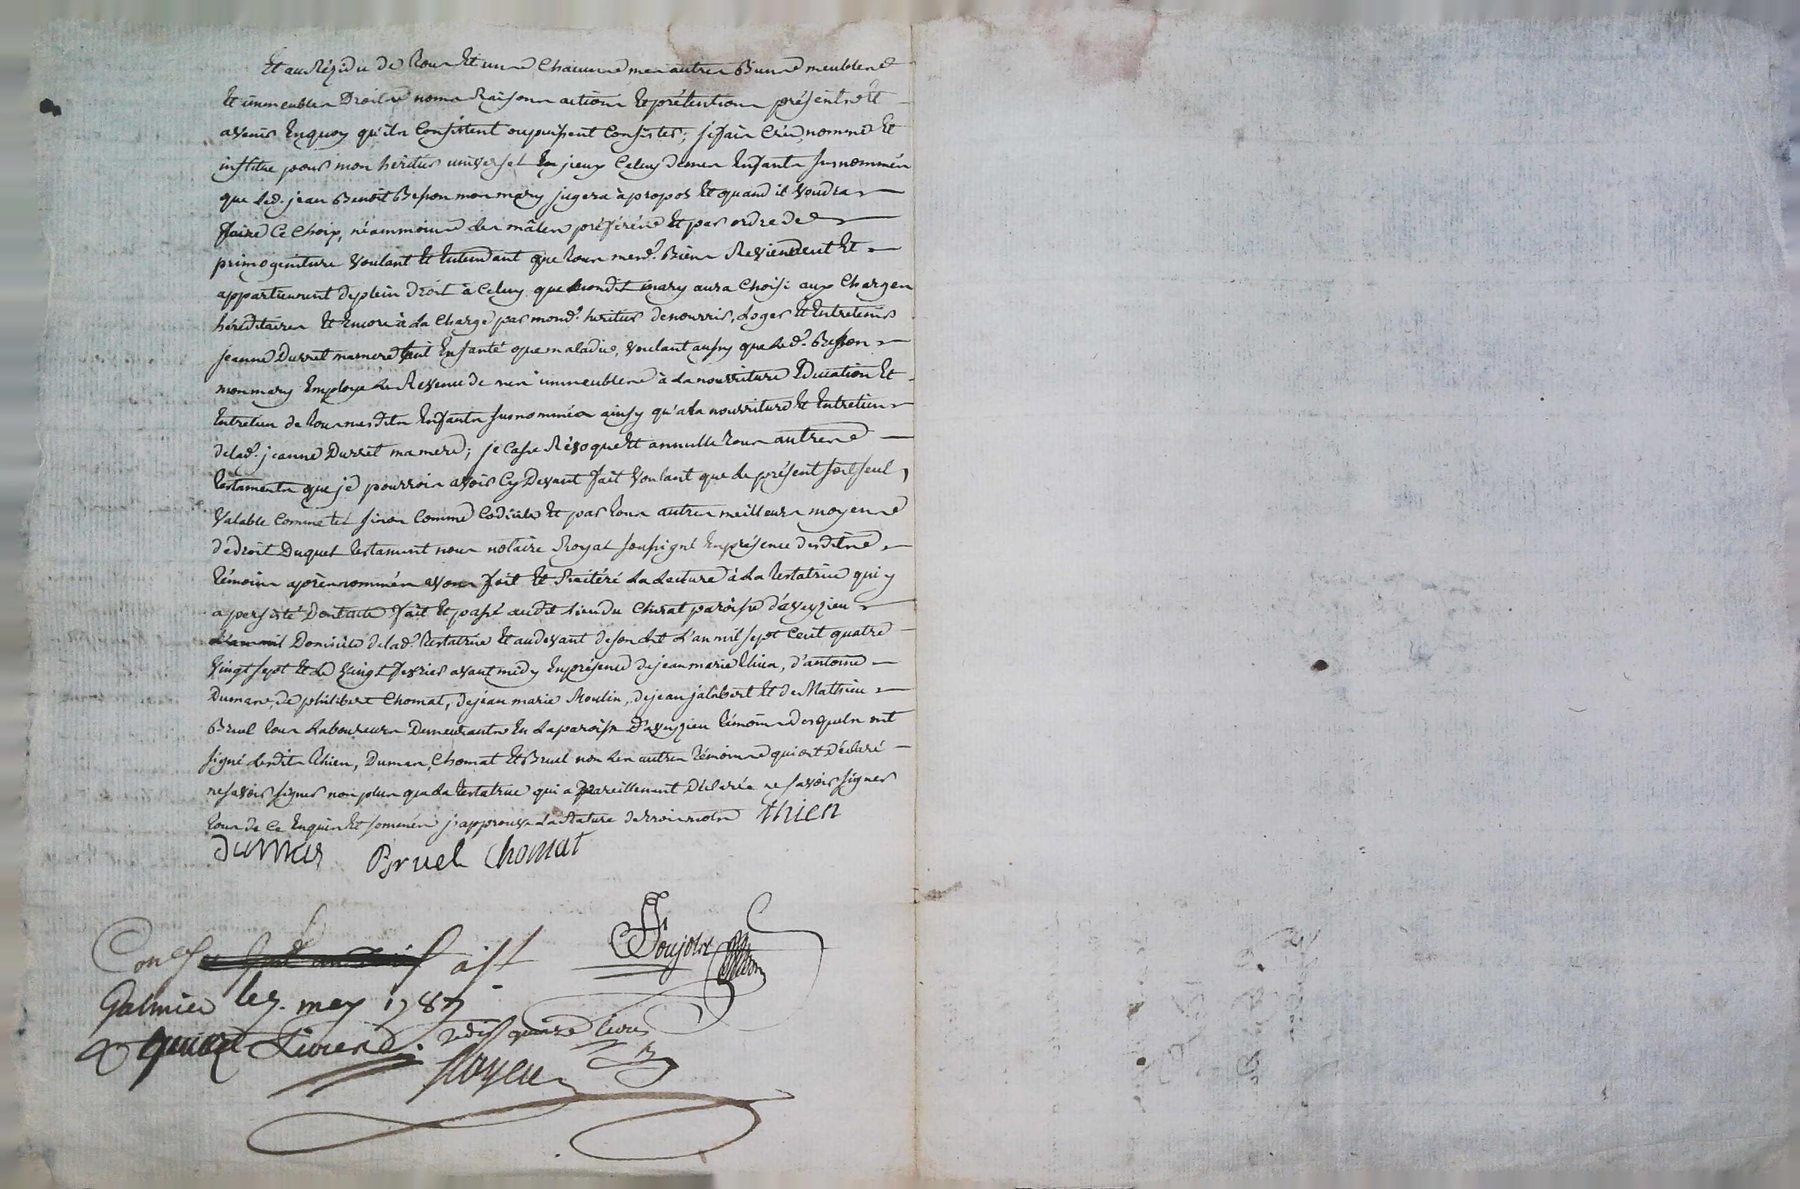 Et au Rézidu de tous Et uns Chacuns mes autres Biens meubles
Et immeubles Droits noms Raisons actions Et prétentions présents Et
avenir Enquoy qu'ils Consistent ou puissent Consister, je fais Crée, nomme Et
institue pour mon héritier universel En jceux Celuy demes Enfants susnommés
que led. jean Benoit Besson mon mary jugera àpropos Et quand il voudra
faire Ce Choix, néanmoins les mâles préférés Et par ordre de
primogeniture voulant Et Entendant que tous mesd. Biens Reviendent Et
appartiennent deplein droit à Celuy que mondit mary aura Choisi aux Charges
héréditaires Et Encore à La Charge par mond. héritier denourrir, Loger Et Entretenir
jeanne Durret mamere tant En santé que maladie, voulant aussy que Led. Besson
monmary Employe Le Revenu de mes immeubles à La nourriture Education Et
Entretien de tous mesdits Enfants susnommés ainsy qu'a La nourriture Et Entretien
delad. jeanne Durret mamere; je Casse Révoque Et annulle tous autres
testaments que je pourrois avoir Cy Devant fait voulant que Le présent soit seul
valable Comme tel sinon Comme Codicile Et par tous autres meilleurs moyens
de droit Duquel testament nous notaire Royal soussigné En présence desdits
témoins après nommés avons fait Et Réitéré La Lecture à La testatrice qui y
a persisté Dont acte fait Et passé audit Lieu du Chirat paroisse d'aveyzieu
Domicile delad. testatrice Et audevant de son Lit L'an mil sept Cent quatre
vingt sept Et Le vingt fevrier avant midy En présence de jean marie thien, d'antoine
Dumas, de philibert Chomat, de jean marie Moulin, de jean jalabert Et de Mathieu
Bruel tous Laboureurs Demeurants En Laparoisse D'aveyzieu témoins desquels ont
signé Lesdits thien, Dumas, Chomat Et Bruel non Les autres témoins qui ont Déclaré
ne savoir signer non plus que La testatrice qui a pareillement Déclarée ne savoir signer
tous de Ce Enquis Et sommés j'approuve La Rature de trois mots thien
Dumas Bruel Chomat
Con.lé a st
Galmier le 7. may 1787
quinze Livres. Redû quinze Livres